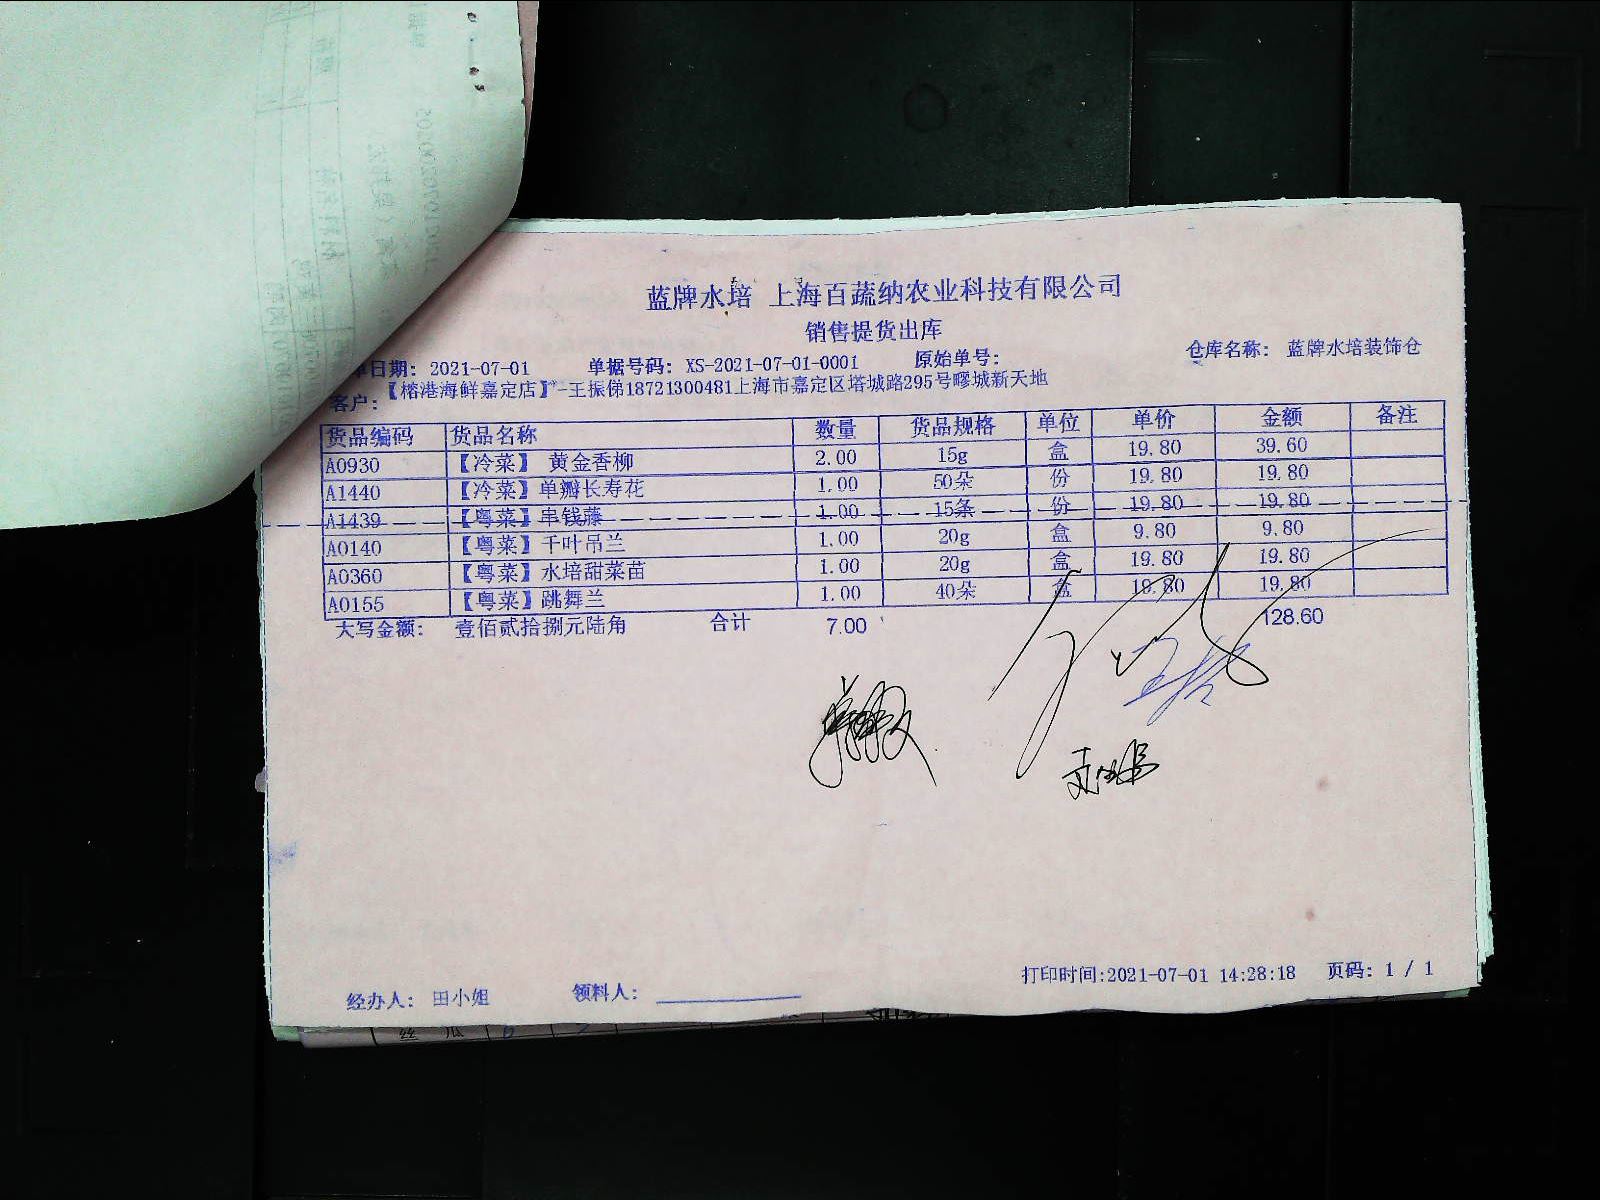 蓝牌水培 上海百蔬纳农业科技有限公司
销售提货出库
单日期: 2021-07-01 单据号码: XS-2021-07-01-0001 原始单号: 仓库名称: 蓝牌水培装饰仓
客户: 【榕港海鲜嘉定店】*-王振俤18721300481上海市嘉定区塔城路295号疁城新天地
货品编码 货品名称 数量 货品规格 单位 单价 金额 备注
A0930 【冷菜】 黄金香柳 2.00 15g 盒 19.80 39.60
A1440 【冷菜】单瓣长寿花 1.00 50朵 份 19.80 19.80
A1439 【粤菜】串钱藤 1.00 15条 份 19.80 19.80
A0140 【粤菜】千叶吊兰 1.00 20g 盒 9.80 9.80
A0360 【粤菜】水培甜菜苗 1.00 20g 盒 19.80 19.80
A0155 【粤菜】跳舞兰 1.00 40朵 盒 19.80 19.80
大写金额: 壹佰贰拾捌元陆角 合计 7.00 128.60
打印时间:2021-07-01 14:28:18 页码: 1 / 1
经办人: 田小姐 领料人: